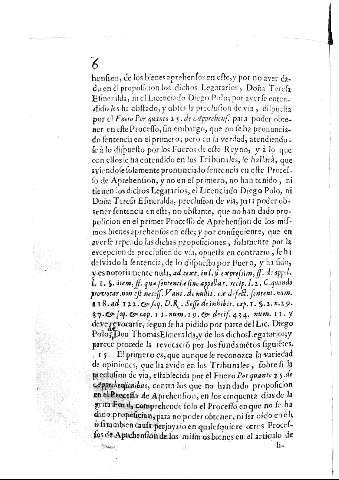 6
hension, de los bienes aprehensos en este, y por no aver da-
do en él proposicion los dichos Legatarios, Doña Teresa
Esmeralda, ni el Licenciado Diego Polo; por averse enten-
dido les ha obstado, y obsta la preclusion de via, dispuesta
por el Fuero Por quanto 25. de Aprehens. para poder obte-
ner en este Processo, sin embargo, que no se ha pronuncia-
do sentencia en el primero; pero en la verdad, atendiendo-
se à lo dispuesto por los Fueros de este Reyno, y à lo que
con ellos se ha entendido en los Tribunales, se hallarà, que
aviendose solamente pronunciado sentencia en este Proces-
so de Aprehension, y no en el primero, no han tenido, ni
tienen los dichos Legatarios, el Licenciado Diego Polo, ni
Doña Teresa Esmeralda, preclusion de via, para poder ob-
tener sentencia en este, no obstante, que no han dado pro-
posicion en el primer Processo de Aprehension de los mis-
mos bienes aprehensos en este; y por consiguiente, que en
averse repelido las dichas proposiciones, solamente por la
excepcion de preclusion de via, opuesta en contrario, se ha
desviado la sentencia, de lo dispuesto por Fuero, y ha sido,
y es notoriamente nula, ad text. in l. si expressim, ff. de appel.
l. 1. §. item, ff. quæ sententiæ sine appellat. recip. l. 2. C. quando
provocar. non est necess. Vant. de nullit. ex defect. sentent. num.
118. ad 122. & seq. D. R. Sesse de inhibit. cap. 1. §. 2. n. 29.
37. & seq. & cap. 11. num. 19. & decis. 434. num. 11. y
deve revocarse, segun se ha pidido por parte del Lic. Diego
Polo, Don Thomas Esmeralda, y de los dichos Legatarios; y
parece procede la revocacion por los fundamentos siguientes.
15 El primero es, que aunque se reconozca la variedad
de opiniones, que ha avido en los Tribunales, sobre si la
preclusion de via, establecida por el Fuero Por quanto 25. de
Aprehensionibus, contra los que no han dado proposicion
en el Processo de Aprehension, en los cinquenta dias de la
grita Foral, comprehende solo el Processo en que no se ha
dado proposicion, para no poder obtener, ni ser oido en él,
ò si tambien causa perjuyzio en qualesquiere otros Proces-
sos de Aprehension de los mismos bienes en el articulo de
li-